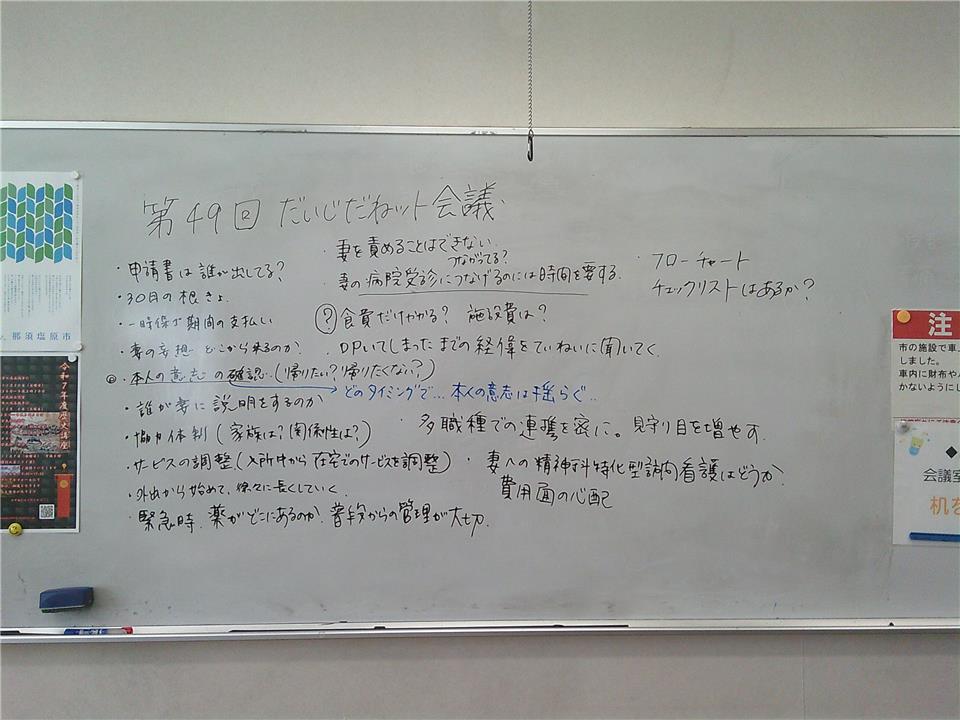 第49回 だいじだねット会議
・申請書は誰が出してる?
・30日の根きょ
・一時保ゴ期間の支払い
・妻の妄想 どこから来るのか
◎・本人の意志の確認…(帰りたい?帰りたくない?)
→どのタイミングで…本人の意志は揺らぐ…
・誰が妻に説明をするのか
・協力体制(家族は?関係性は?)
・サービスの調整(入所中から在宅でのサービスを調整)
・外出から始めて、徐々に長くしていく
・緊急時、薬がどこにあるのか、普段からの管理が大切.
・妻を責めることはできない
つながってる?
妻の病院受診につなげるのには時間を要する.
?食費だけかかる? 施設費は?
・DVいてしまったまでの経偉をていねいに聞いてく
多職種での連携を密に。見守り目を増やす.
・妻への精神科特化型訪問看護はどうか
費用面の心配
・フローチャート
チェックリストはあるか?
那須塩原市
令和7年度歴史講座
注
市の施設で車上
しました。
車内に財布や
かないようにし
会議室
机を